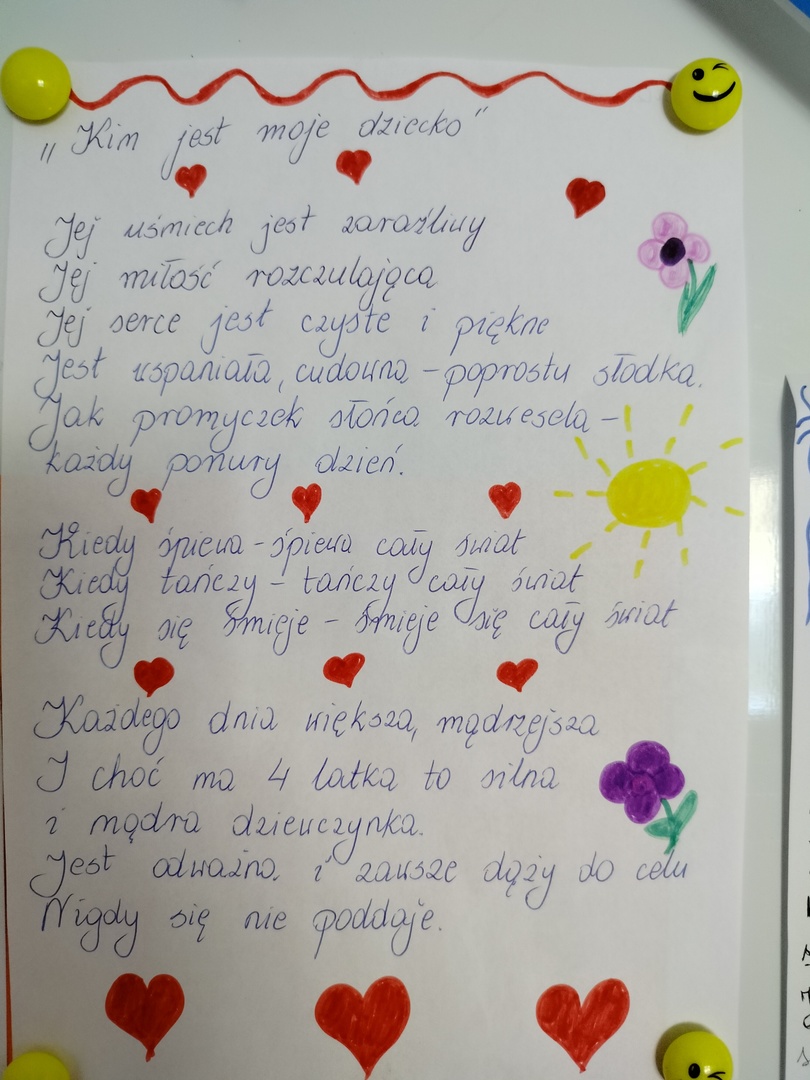 „Kim jest moje dziecko"
Jej uśmiech jest zaraźliwy
Jej miłość rozczulająca
Jej serce jest czyste i piękne
Jest wspaniała, cudowna - poprostu słodka.
Jak promyczek słońca rozwesela -
każdy ponury dzień.
Kiedy śpiewa - śpiewa cały świat
Kiedy tańczy - tańczy cały świat
Kiedy się śmieje - śmieje się cały świat
Każdego dnia większa, mądrzejsza
I choć ma 4 latka to silna
i mądra dziewczynka.
Jest odważna i zawsze dąży do celu
Nigdy się nie poddaje.